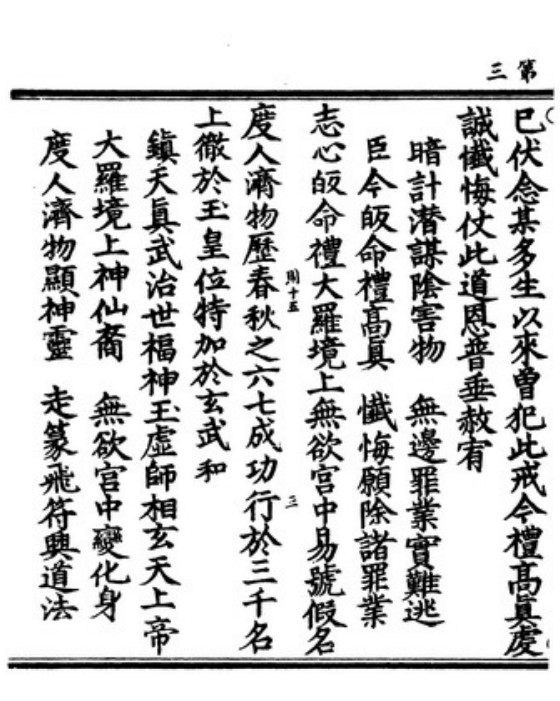 第三
巳伏念某多生以來曾犯此戒今禮髙眞虔
誠懺悔仗此道恩普垂赦宥
暗計潛謀陰害物　無邊罪業實難逃
臣今皈命禮髙眞　懺悔願除諸罪業
志心皈命禮大羅境上無欲宮中易號假名
周十五　三
度人濟物歷春秋之六七成功行於三千名
上徹於玉皇位特加於玄武和
鎭天眞武治世福神玉虛師相玄天上帝
大羅境上神仙裔　無欲宮中變化身
度人濟物顯神靈　走篆飛符興道法